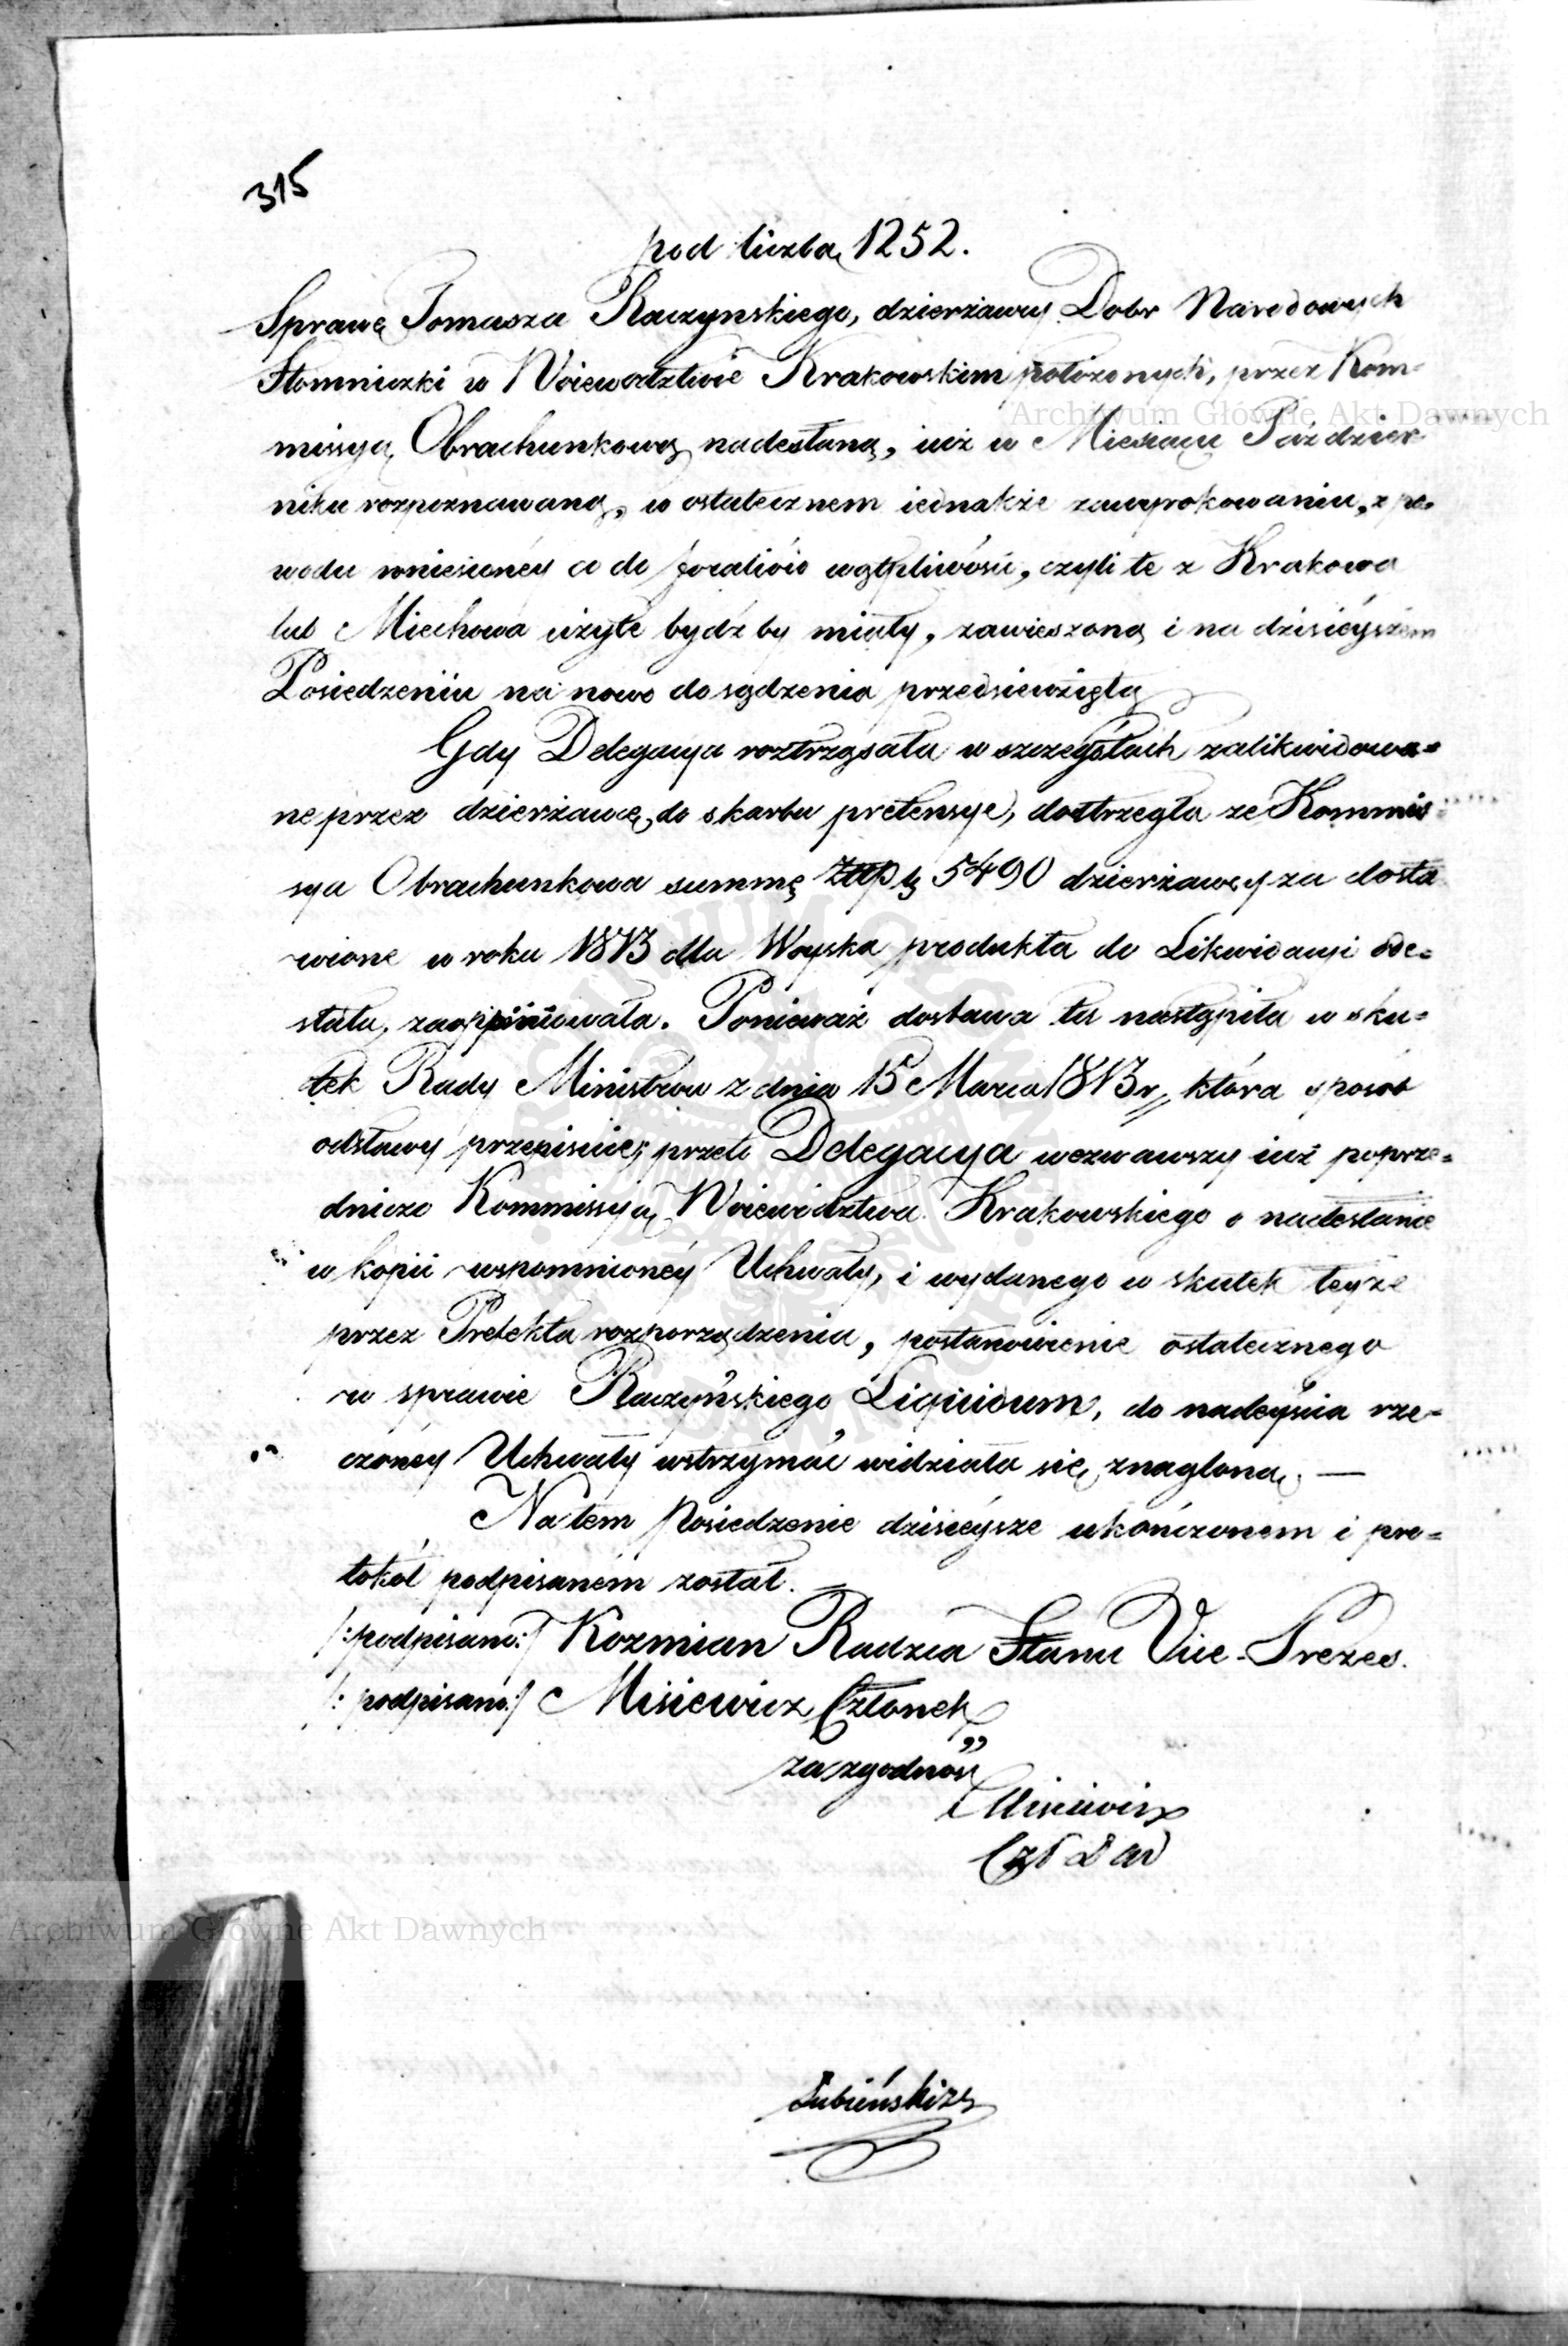 315
pod liczbą 1252.
Sprawę Tomasza Raczynskiego, dzierżawcy Dobr Narodowych
Słomniczki w Woiewodztwie Krakowskim położonych, przez Kom-
Archiwum Główne Akt Dawnych
missyą Obrachunkową nadesłaną, iuż w Miesiącu Paździer
niku rozpoznawaną, w ostatecznem iednakże zawyrokowaniu, z po-
wodu wniesionéy co do foraliów wątpliwości, czyli te z Krakowa
lub Miechowa użyte bydź by miały, zawieszoną i na dzisiéyszém
Posiedzeniu na nowo do sądzenia przedsiewziętą
Gdy Delegacya roztrząsała w szczegółach zalikwidowa=
ne przez dzierżawcę do skarbu pretensye, dostrzegła ze Kommis
sya Obrachunkowa summę Złłp 5490 dzierżawcy za dosta
wione w roku 1813 dla Woyska produkta do Likwidacyi ode=
słała, zaopiniowała. Ponieważ dostawa ta nastąpiła w sku=
tek Rady Ministrów z dnia 15 Marca 1813 r, która sposób
odstawy przepisuie; przeto Delegacya wezwawszy iuż poprze=
dniczo Kommissyą Woiewództwa Krakowskiego o nadesłanie
w kopii wspomnionéy Uchwały, i wydanego w skutek teyże
przez Prefekta rozporządzenia, postanowienie ostatecznego
w sprawie Raczyńskiego Liquidum, do nadeyścia rze=
czonéy Uchwały wstrzymać widziała się znagloną. —
Na tem Posiedzenie dzisiéysze ukończonem i pro=
tokół podpisaném został.
/:podpisano:/ Kozmian Radzca Stanu Vice-Prezes.
/:podpisano:/ Misiewicz Członek
za zgodność
Misiewicz
Czł Del
Archiwum Główne Akt Dawnych
Łubieński